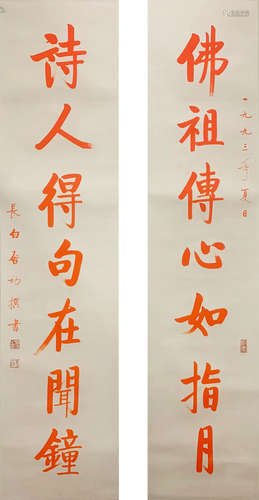 佛祖傳心如指月
一九九三年夏日
詩人得句在聞鐘
長白啓功撰書